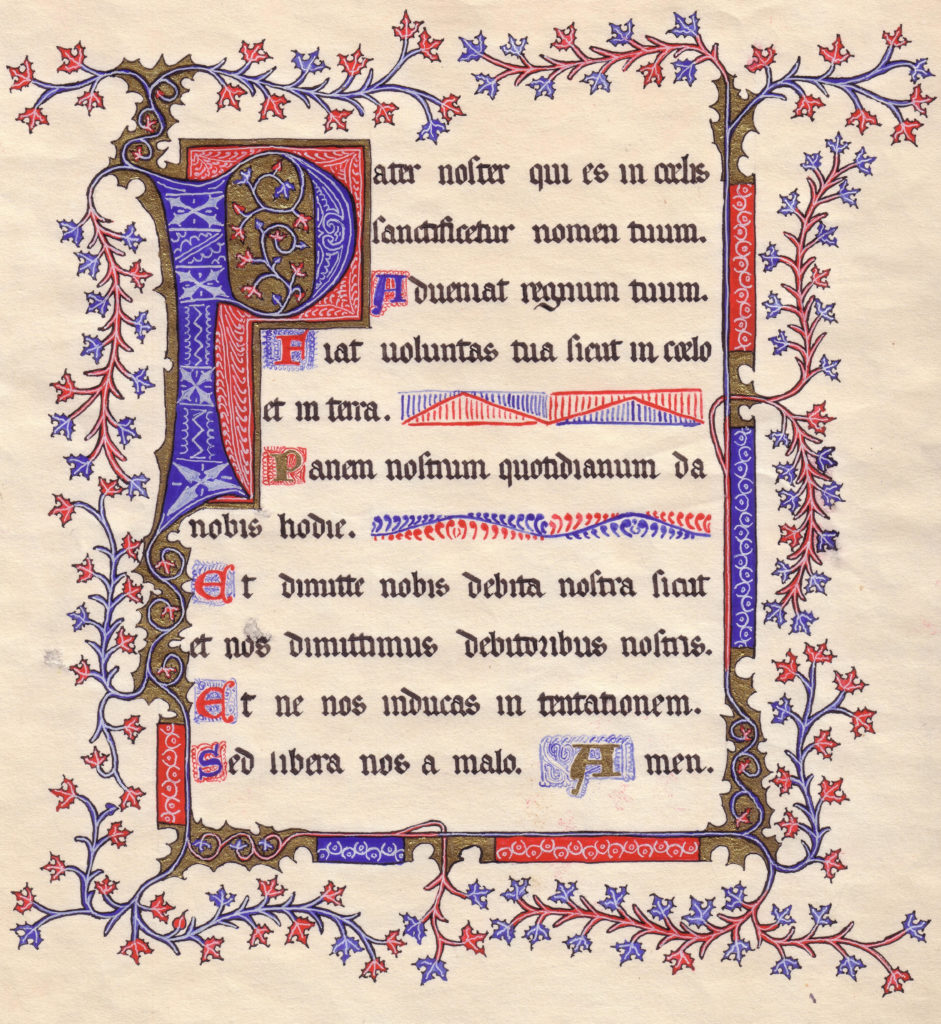 Pater noster qui es in cœlis
sanctificetur nomen tuum.
Adueniat regnum tuum.
Fiat uoluntas tua sicut in cœlo
et in terra.
Panem nostrum quotidianum da
nobis hodie.
Et dimitte nobis debita nostra sicut
et nos dimittimus debitoribus nostris.
Et ne nos inducas in tentationem.
Sed libera nos a malo. Amen.